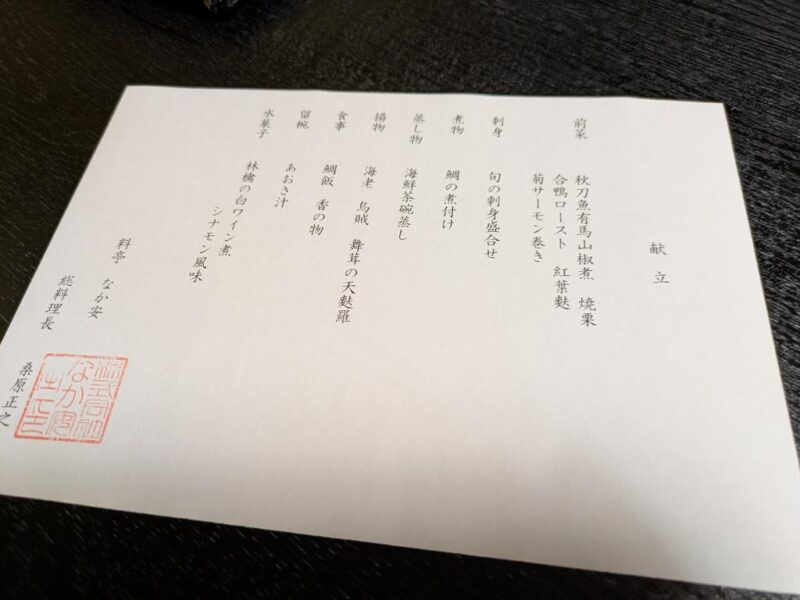 献立
前菜 秋刀魚有馬山椒煮 焼栗
合鴨ロースト 紅葉麩
菊サーモン巻き
刺身 旬の刺身盛合せ
煮物 鯛の煮付け
蒸し物 海鮮茶碗蒸し
揚物 海老 烏賊 舞茸の天麩羅
食事 鯛飯 香の物
留椀 あおさ汁
水菓子 林檎の白ワイン煮
シナモン風味
料亭 なか安
総料理長 桑原正之
株式会社
なか安
之印